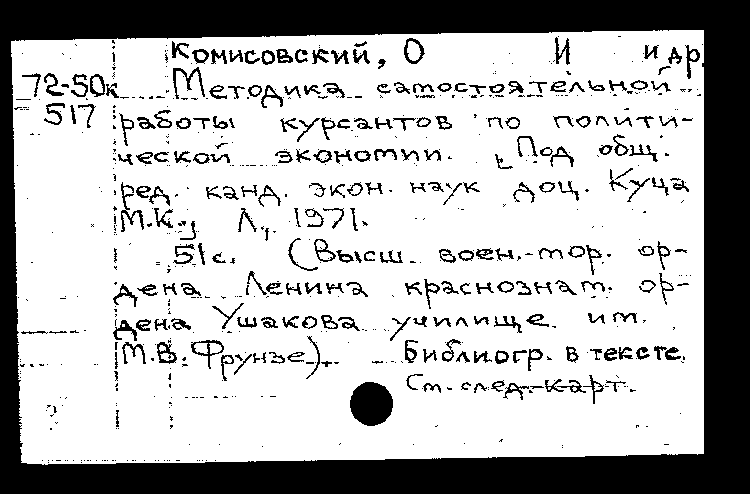 Комисовский, О И и др.
72-50к Методика самостоятельной
517 работы курсантов по полити-
ческой экономии. Под общ.
ред. канд. экон. наук доц. Куца
М.К., Л., 1971.
51с. (Высш. воен.-мор. ор-
дена Ленина краснознам. ор-
дена Ушакова училище им.
М.В. Фрунзе). Библиогр. в тексте.
См. след. карт.